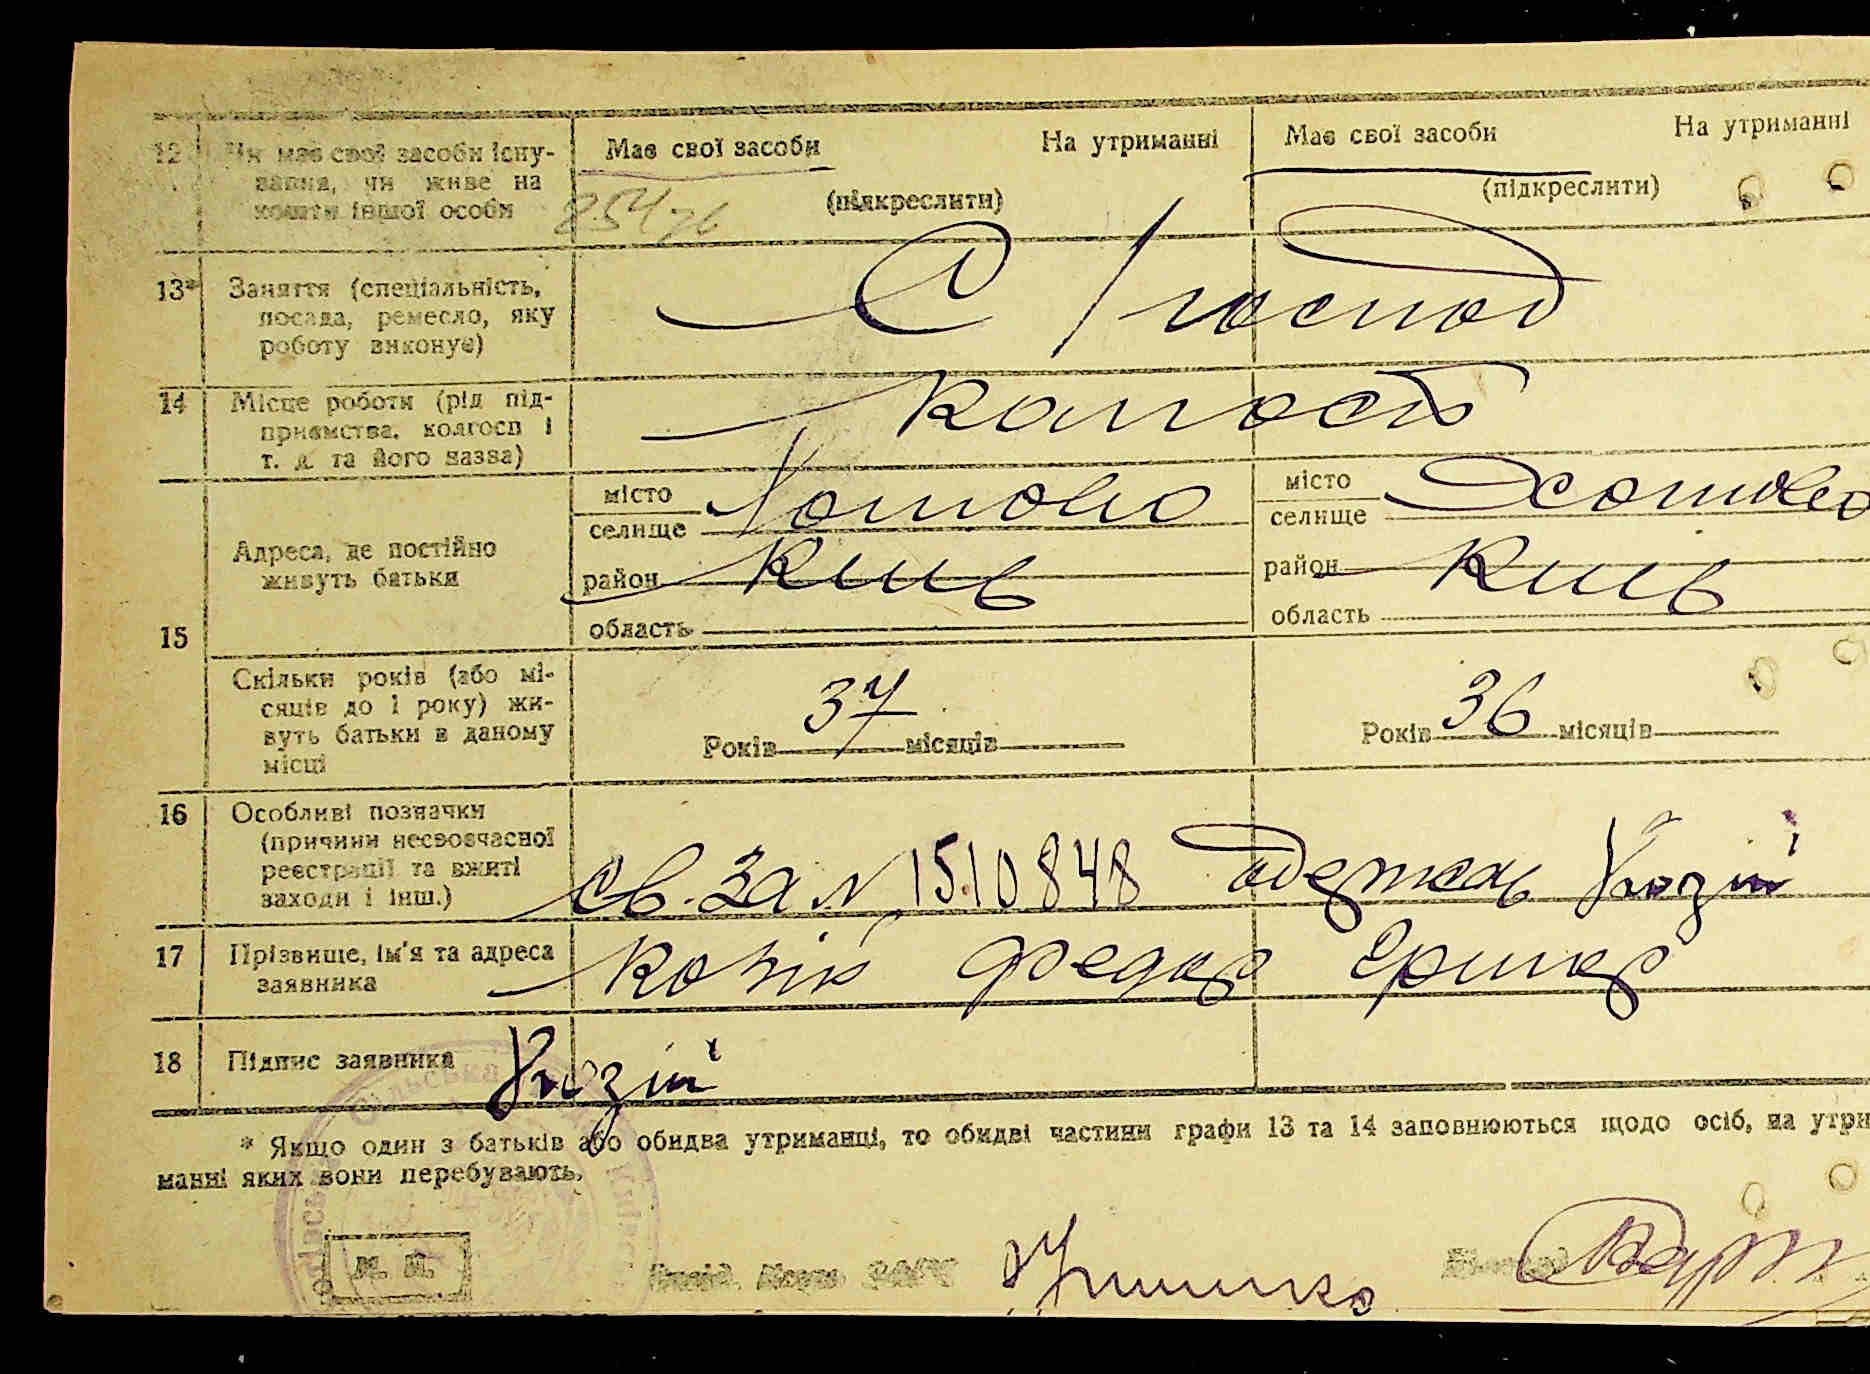 12 Чи має свої засоби існу- Має свої засоби На утриманні Має свої засоби На утриманні
вання, чи живе на
кошти іншої особи (підкреслити) (підкреслити)
254
13* Заняття (спеціальність,
посада, ремесло, яку
роботу виконує)
С/господ
14 Місце роботи (рід під-
приємства, колгосп і
т. д. та його назва)
15 Адреса, де постійно
живуть батьки
місто Хотово місто Хотово
селище селище
район Київ район Київ
область область
Скільки років (або мі-
сяців до 1 року) жи-
вуть батьки в даному
місці
Років 37 місяців Років 36 місяців
16 Особливі позначки
(причини несвоєчасної
реєстрації та вжиті
заходи і інш.)
св. за № 1510848 одержав Козій
17 Прізвище, ім'я та адреса
заявника
Федор
18 Підпис заявника Козій
* Якщо один з батьків або обидва утриманці, то обидві частини графи 13 та 14 заповнюються щодо осіб, на утри
манні яких вони перебувають.
М. П.